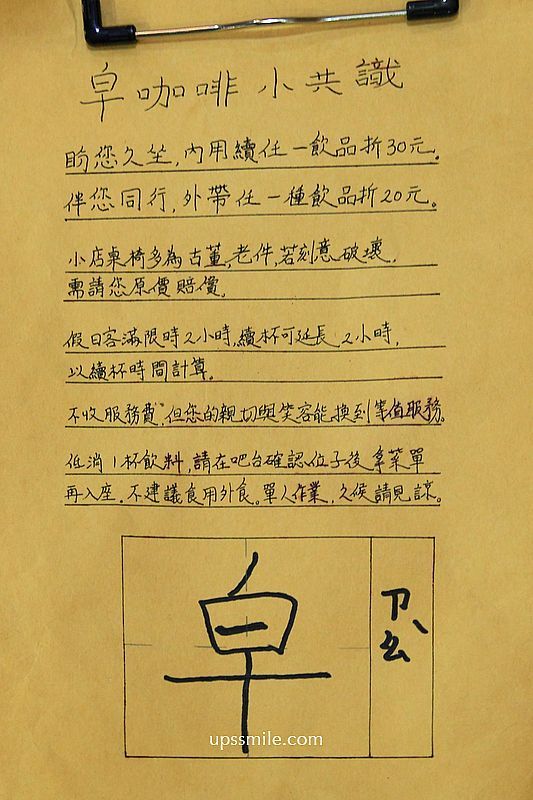 皁咖啡小共識
盼您久坐,內用續任一飲品折30元。
伴您同行,外帶任一種飲品折20元。
小店桌椅多為古董,老件,若刻意破壞,
需請您原價賠償。
假日客滿限時2小時,續杯可延長2小時,
以續杯時間計算。
不收服務費,但您的親切與笑容能換到等值服務。
低消1杯飲料,請在吧台確認位子後拿菜單
再入座.不建議食用外食。單人作業,久候請見諒。
皁
ㄗㄠˋ
upssmile.com